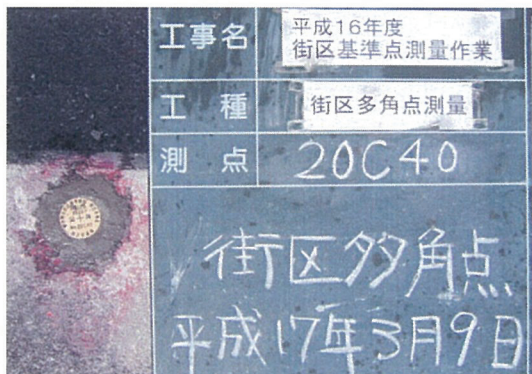 工事名
平成16年度
街区基準点測量作業
工種
街区多角点測量
測点
20C40
街区多角点
平成17年3月9日